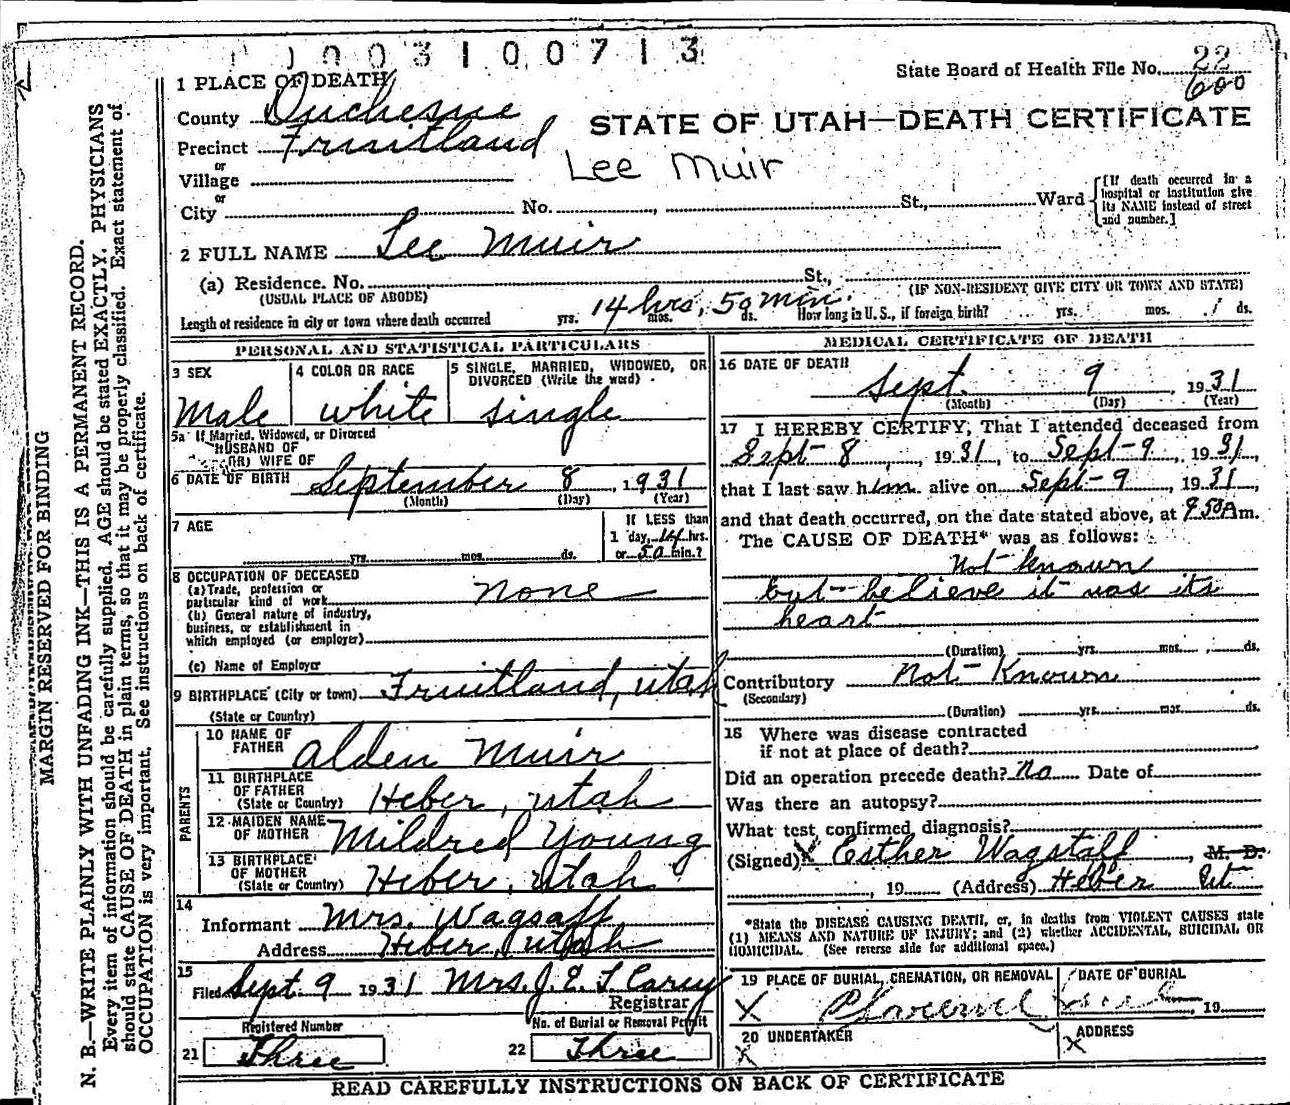 1003100713
State Board of Health File No. 22
600
1 PLACE OF DEATH
County Duchesne
STATE OF UTAH—DEATH CERTIFICATE
Precinct Fruitland
Lee Muir
or
Village
or
City No. , St., Ward
[If death occurred in a
hospital or institution give
its NAME instead of street
and number.]
2 FULL NAME Lee Muir
(a) Residence. No. St.,
(USUAL PLACE OF ABODE) (IF NON-RESIDENT GIVE CITY OR TOWN AND STATE)
14 hrs, 50 min.
Length of residence in city or town where death occurred yrs. mos. ds. How long in U. S., if foreign birth? yrs. mos. ds.
PERSONAL AND STATISTICAL PARTICULARS
3 SEX 4 COLOR OR RACE 5 SINGLE, MARRIED, WIDOWED, OR
DIVORCED (Write the word)
Male white single
5a If Married, Widowed, or Divorced
HUSBAND OF
(OR) WIFE OF
6 DATE OF BIRTH September 8, 1931
(Month) (Day) (Year)
7 AGE If LESS than
1 day, 14 hrs.
yrs. mos. ds. or 50 min.?
8 OCCUPATION OF DECEASED
(a) Trade, profession or
particular kind of work none
(b) General nature of industry,
business, or establishment in
which employed (or employer)
(c) Name of Employer
9 BIRTHPLACE (City or town) Fruitland, Utah
(State or Country)
PARENTS
10 NAME OF
FATHER Alden Muir
11 BIRTHPLACE
OF FATHER
(State or Country) Heber, Utah
12 MAIDEN NAME
OF MOTHER Mildred Young
13 BIRTHPLACE
OF MOTHER
(State or Country) Heber, Utah
14
Informant Mrs. Wagsaff
Address Heber, Utah
15
Filed Sept. 9 1931 Mrs. J. E. T. Carey
Registrar
Registered Number No. of Burial or Removal Permit
21 Three 22 Three
MEDICAL CERTIFICATE OF DEATH
16 DATE OF DEATH
Sept. 9 1931
(Month) (Day) (Year)
17 I HEREBY CERTIFY, That I attended deceased from
Sept-8, 1931, to Sept-9, 1931,
that I last saw him alive on Sept-9, 1931,
and that death occurred, on the date stated above, at 9 50 A m.
The CAUSE OF DEATH* was as follows:
Not known
but believe it was its
heart
(Duration) yrs. mos. ds.
Contributory Not-Known
(Secondary)
(Duration) yrs. mos. ds.
18 Where was disease contracted
if not at place of death?
Did an operation precede death? No Date of
Was there an autopsy?
What test confirmed diagnosis?
(Signed) x Esther Wagstaff, M. D.
, 19 (Address) Heber Ut
*State the DISEASE CAUSING DEATH, or, in deaths from VIOLENT CAUSES state
(1) MEANS AND NATURE OF INJURY; and (2) whether ACCIDENTAL, SUICIDAL OR
HOMICIDAL. (See reverse side for additional space.)
19 PLACE OF BURIAL, CREMATION, OR REMOVAL DATE OF BURIAL
X , 19
20 UNDERTAKER ADDRESS
X X
READ CAREFULLY INSTRUCTIONS ON BACK OF CERTIFICATE
MARGIN RESERVED FOR BINDING
N. B.—WRITE PLAINLY WITH UNFADING INK—THIS IS A PERMANENT RECORD.
Every item of information should be carefully supplied. AGE should be stated EXACTLY. PHYSICIANS
should state CAUSE OF DEATH in plain terms, so that it may be properly classified. Exact statement of
OCCUPATION is very important. See instructions on back of certificate.